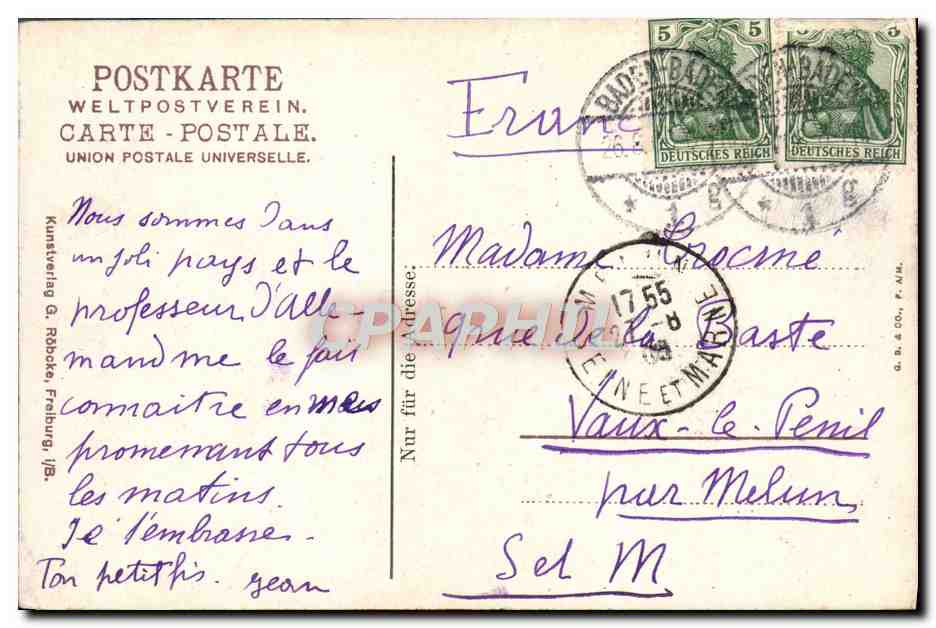 POSTKARTE
WELTPOSTVEREIN.
CARTE - POSTALE.
UNION POSTALE UNIVERSELLE.
Nous sommes dans
un joli pays et le
professeur d'Alle-
mand me le fait
connaitre en me
promenant tous
les matins.
Je t'embrasse.
Ton petit fils. Jean
Kunstverlag G. Röbcke, Freiburg, i/B.
Nur für die Adresse.
5 5
DEUTSCHES REICH
5
DEUTSCHES REICH
BADEN-BADEN
26.
* 1 g
BADEN
* 1 g
France
Madame Crocmé
9 rue de la Baste
Vaux-le-Penil
par Melun
S et M
17 55
-8
09
SEINE ET MARNE
CPARHIL
G. B. & CO., F. A/M.